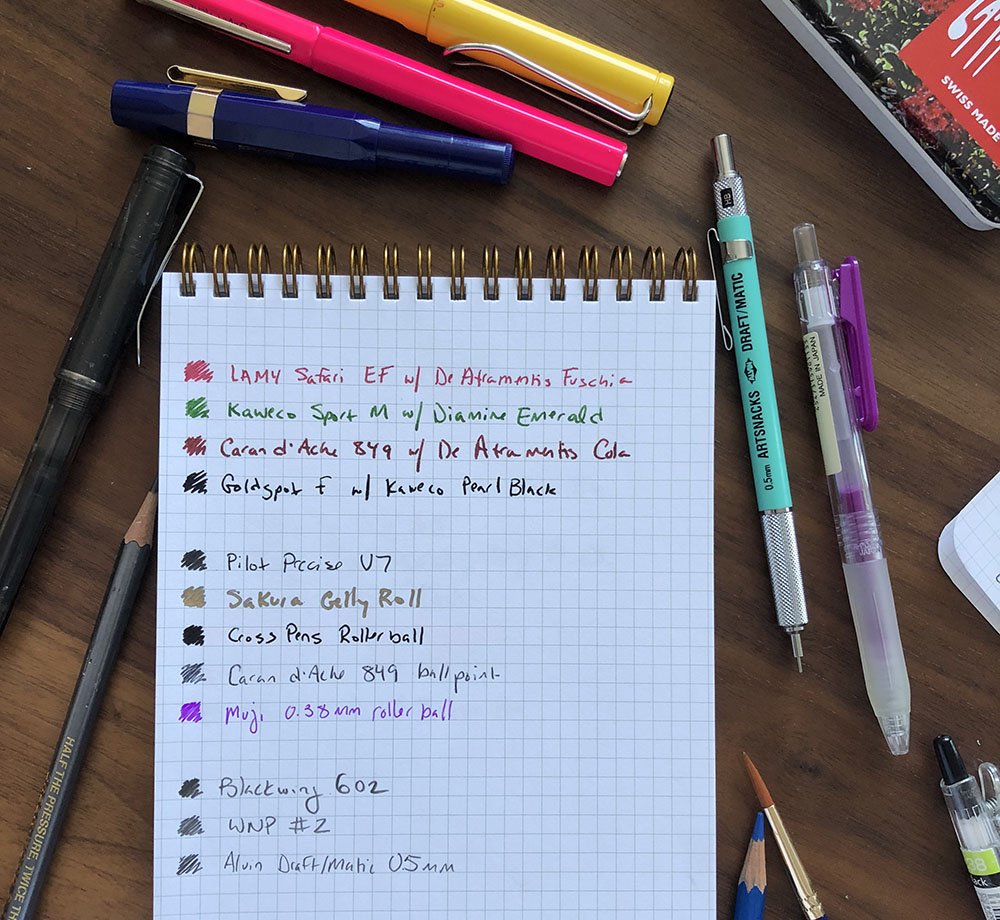 SWISS MADE
HB
ARTSNACKS DRAFT/MATIC
0.5mm
MADE IN JAPAN
LAMY Safari EF w/ De Atramentis Fuschia
Kaweco Sport M w/ Diamine Emerald
Caran d'Ache 849 w/ De Atramentis Cola
Goldspot F w/ Kaweco Pearl Black
Pilot Precise V7
Sakura Gelly Roll
Cross Pens Rollerball
Caran d'Ache 849 ballpoint
Muji 0.38mm rollerball
Blackwing 602
WNP #2
Alvin Draft/Matic 0.5mm
HALF THE PRESSURE, TWICE TH